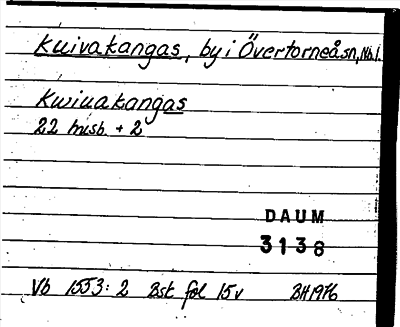 Kuivakangas, by i Övertorneå sn, Nb l.
Kwiuakangas
22 husb. + 2
DAUM
3138
Vb 1553: 2 Bst fol 15v BH 1976